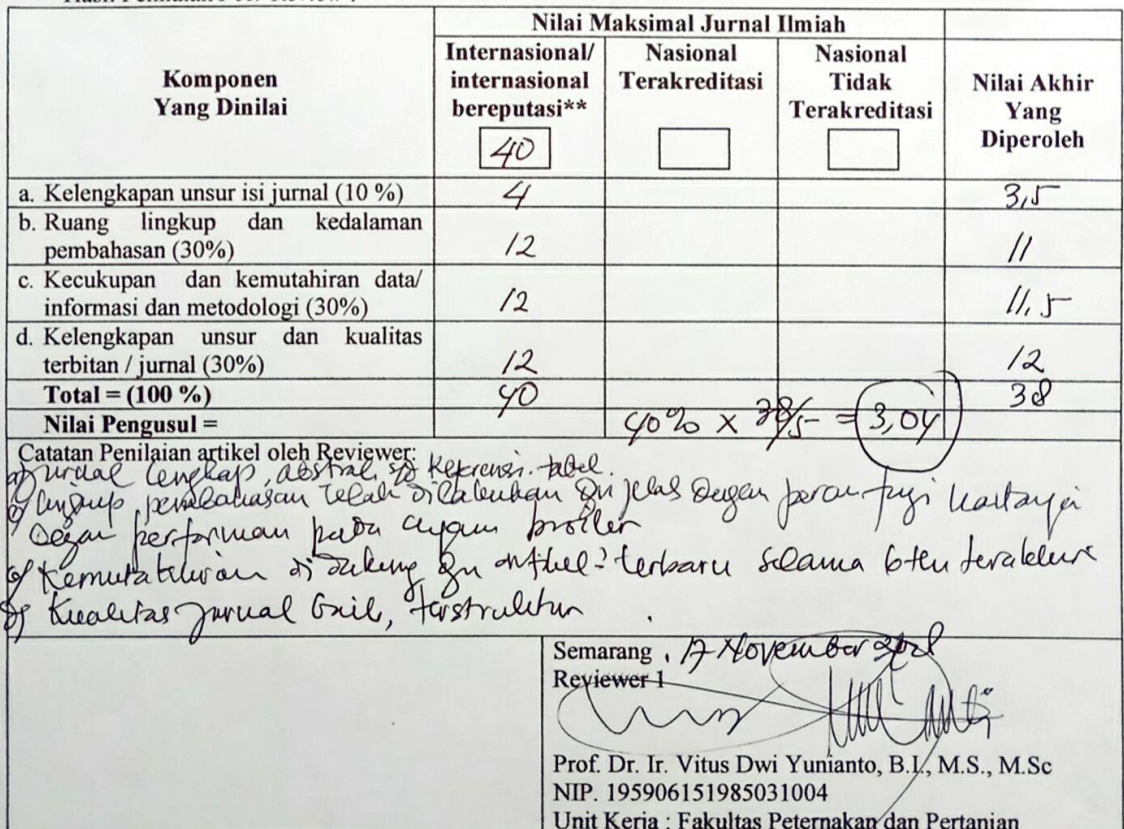 Nilai Maksimal Jurnal Ilmiah
Komponen
Yang Dinilai
Internasional/
internasional
bereputasi**
40
Nasional
Terakreditasi
Nasional
Tidak
Terakreditasi
Nilai Akhir
Yang
Diperoleh
a. Kelengkapan unsur isi jurnal (10 %) 4 3,5
b. Ruang lingkup dan kedalaman
pembahasan (30%) 12 11
c. Kecukupan dan kemutahiran data/
informasi dan metodologi (30%) 12 11,5
d. Kelengkapan unsur dan kualitas
terbitan / jurnal (30%) 12 12
Total = (100 %) 40 38
Nilai Pengusul = 40% x 38/5 = 3,04
Catatan Penilaian artikel oleh Reviewer:
a) jurnal lengkap, abstrak tabel.
pembahasan telah jelas dengan
performan pada ayam broiler
c) Kemutakhiran terbaru selama
d) Kualitas jurnal baik, terstruktur
Semarang, 17 November
Reviewer 1
Prof. Dr. Ir. Vitus Dwi Yunianto, B.I., M.S., M.Sc
NIP. 195906151985031004
Unit Kerja : Fakultas Peternakan dan Pertanian